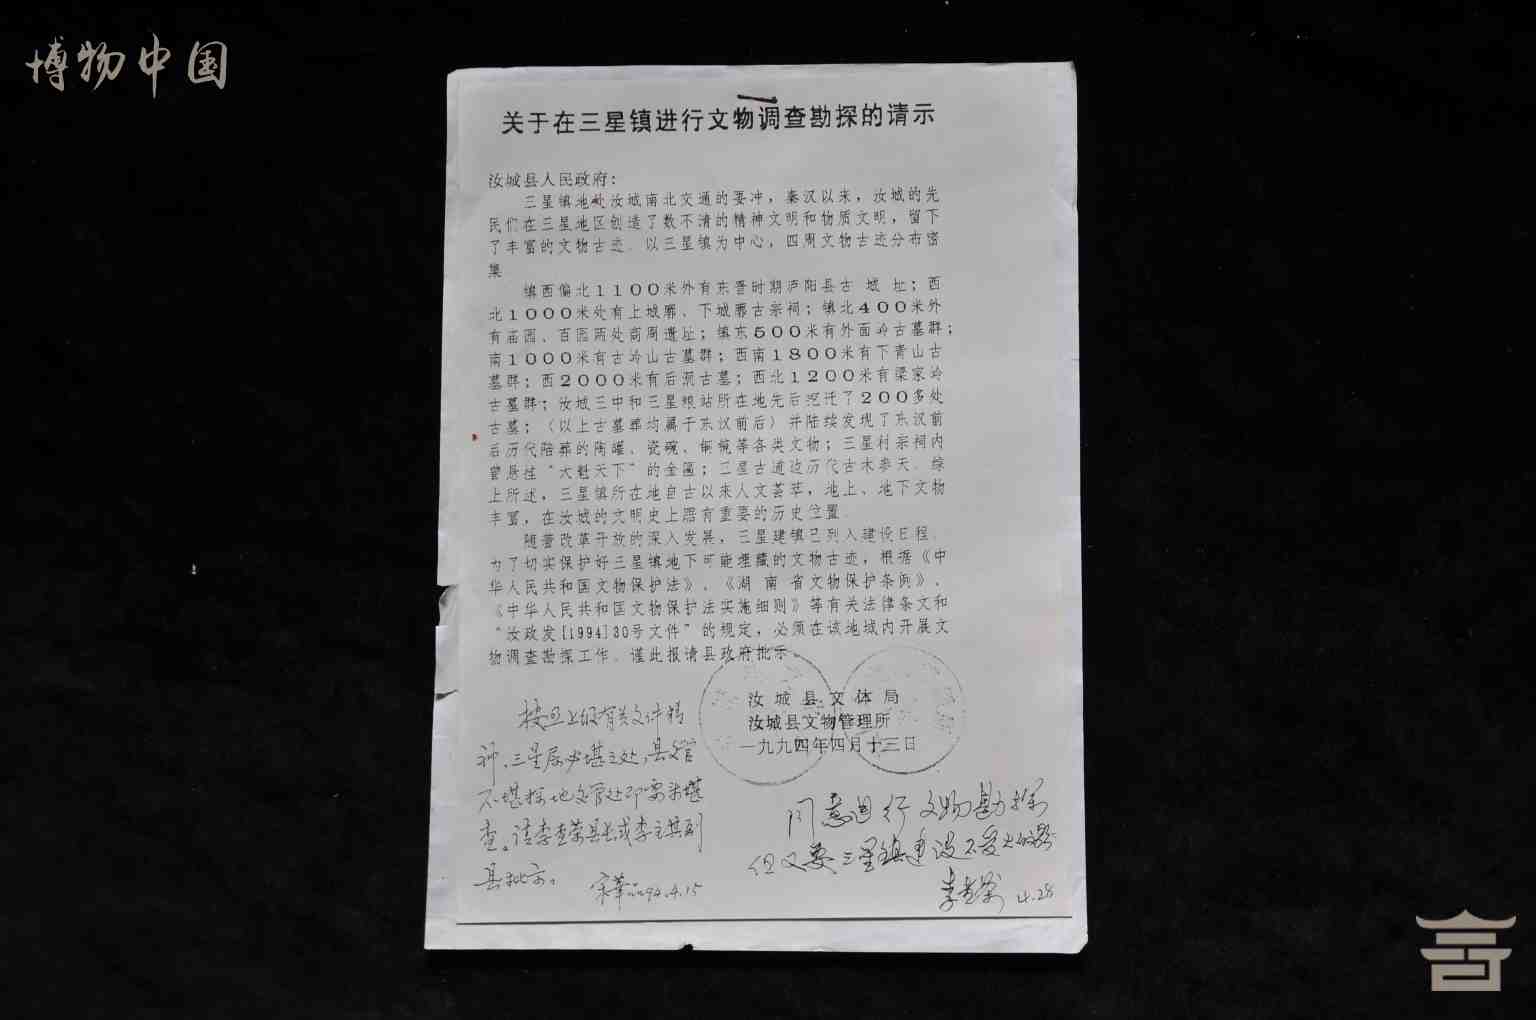 博物中国
关于在三星镇进行文物调查勘探的请示
汝城县人民政府：
三星镇地处汝城南北交通的要冲，秦汉以来，汝城的先
民们在三星地区创造了数不清的精神文明和物质文明，留下
了丰富的文物古迹。以三星镇为中心，四周文物古迹分布密
集
镇西偏北1100米外有东晋时期庐阳县古 城 址；西
北1000米处有上城廓、下城廓古宗祠；镇北400米外
有庙圆、百圆两处商周遗址；镇东500米有外面岭古墓群；
南1000米有古岭山古墓群；西南1800米有下青山古
墓群；西2000米有后洞古墓；西北1200米有梁家岭
古墓群；汝城三中和三星粮站所在地先后挖迁了200多处
古墓；（以上古墓葬均属于东汉前后）并陆续发现了东汉前
后历代陪葬的陶罐、瓷碗、铜镜等各类文物；三星村宗祠内
曾悬挂“大魁天下”的金匾；三星古道边历代古木参天。综
上所述，三星镇所在地自古以来人文荟萃，地上、地下文物
丰富，在汝城的文明史上踞有重要的历史位置。
随着改革开放的深入发展，三星建镇已列入建设日程。
为了切实保护好三星镇地下可能埋藏的文物古迹，根据《中
华人民共和国文物保护法》、《湖 南 省文物保护条例》、
《中华人民共和国文物保护法实施细则》等有关法律条文和
“汝政发[1994]30号文件”的规定，必须在该地域内开展文
物调查勘探工作。谨此报请县政府批示。
汝 城 县 文 体 局
汝城县文物管理所
一九九四年四月十三日
按照上级有关文件精
神，三星属必堪之处，县文管
查。请李查荣县长或李主其到
县批示。
宋华 94.4.15
同意进行文物勘探
但又要三星镇建设不受大的影
李查荣 4.28